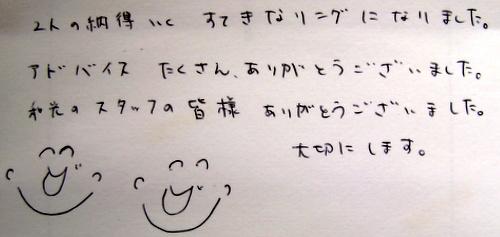 2人の納得いく すてきなリングになりました。
アドバイス たくさん、ありがとうございました。
和光のスタッフの皆様 ありがとうございました。
大切にします。